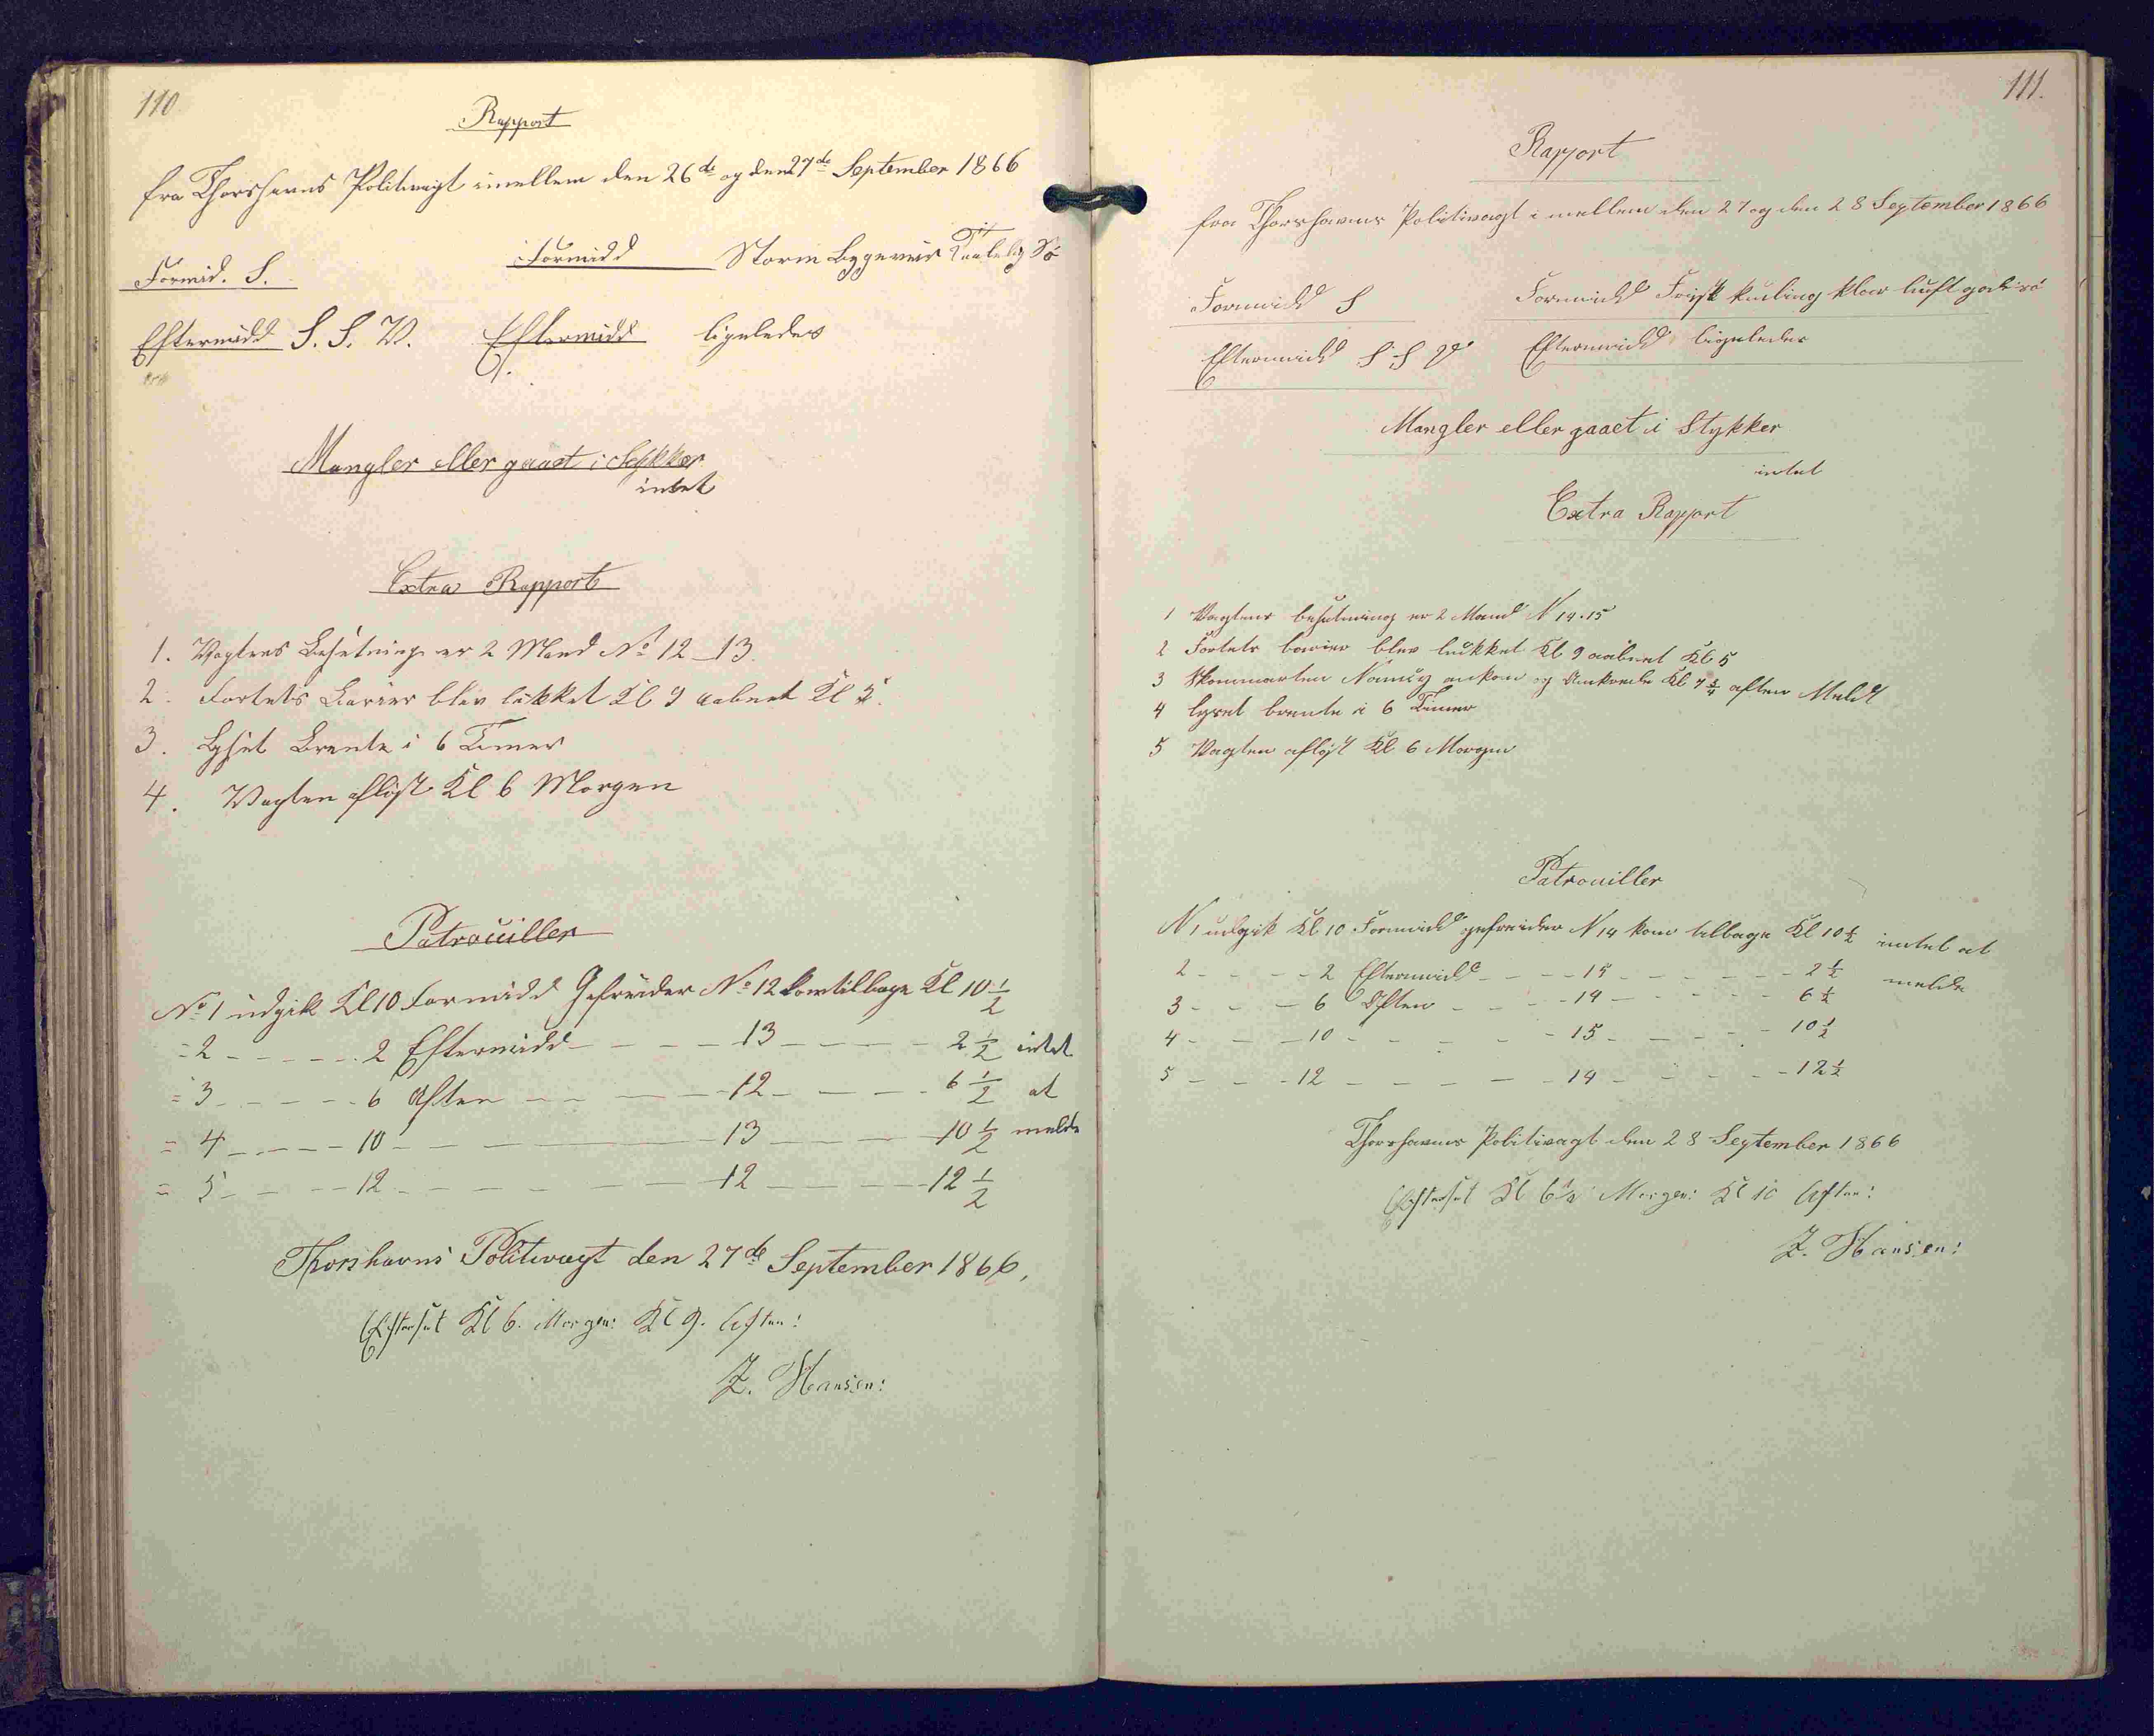 110.
Rapport
fra Thorshavns Politivagt imellem den 26de og den 27de September 1866
Formid. S.
Formidd Storm Bygeveir Sö
Eftermidd S. S. V. Eftermidd ligeledes
Mangler eller gaaet i Stykker
intet
Extra Rapport
1. Vagtens Besetning er 2 Mand No 12_13.
2. Fortets Barier blev lukket Kl 9 aabnet Kl 5.
3. Lyset Brente i 6 Timer
4. Vagten aflöst Kl 6 Morgen
Patrouiller
No 1 udgik Kl 10 Formidd Gefreider No 12 kom tilbage Kl 10 1/2
= 2 - - - - - 2 Eftermidd - - - - 13 - - - - 2 1/2 intet
= 3 - - - - - 6 Aften - - - - 12 - - - - 6 1/2 at
= 4 - - - - 10 - - - - 13 - - - - 10 1/2 melde
= 5 - - - - 12 - - - - 12 - - - - 12 1/2
Thorshavns Politivagt den 27de September 1866,
Efterset Kl 6. Morgen: Kl 9. Aften:
Z. Hansen:
111.
Rapport
fra Thorshavns Politivagt i mellem den 27 og den 28 September 1866
Formidd S Formidd Frisk kuling klar luft god sö
Eftermidd S S V Eftermidd ligeledes
Mangler eller gaaet i Stykker
intet
Extra Rapport
1 Vagtens besetning er 2 Mand N 14.15
2 Fortets barier blev lukket Kl 9 aabnet Kl 5
3 Skonnarten Nancy ankom og Ankrede Kl 7 3/4 aften Meldt
4 lyset brente i 6 Timer
5 Vagten aflöst Kl 6 Morgen
Patrouiller
N 1 udgik Kl 10 Formidd gefreider N 14 kom tilbage Kl 10 1/2 intet at
2 - - - - 2 Eftermidd - - - 15 - - - - 2 1/2 melde
3 - - - 6 Aften - - - 14 - - - - 6 1/2
4 - - - 10 - - - - 15 - - - - 10 1/2
5 - - - 12 - - - - 14 - - - - 12 1/2
Thorshavns Politivagt den 28 September 1866
Efterset Kl 6 1/2 Morgen: Kl 10 Aften:
Z. Hansen: